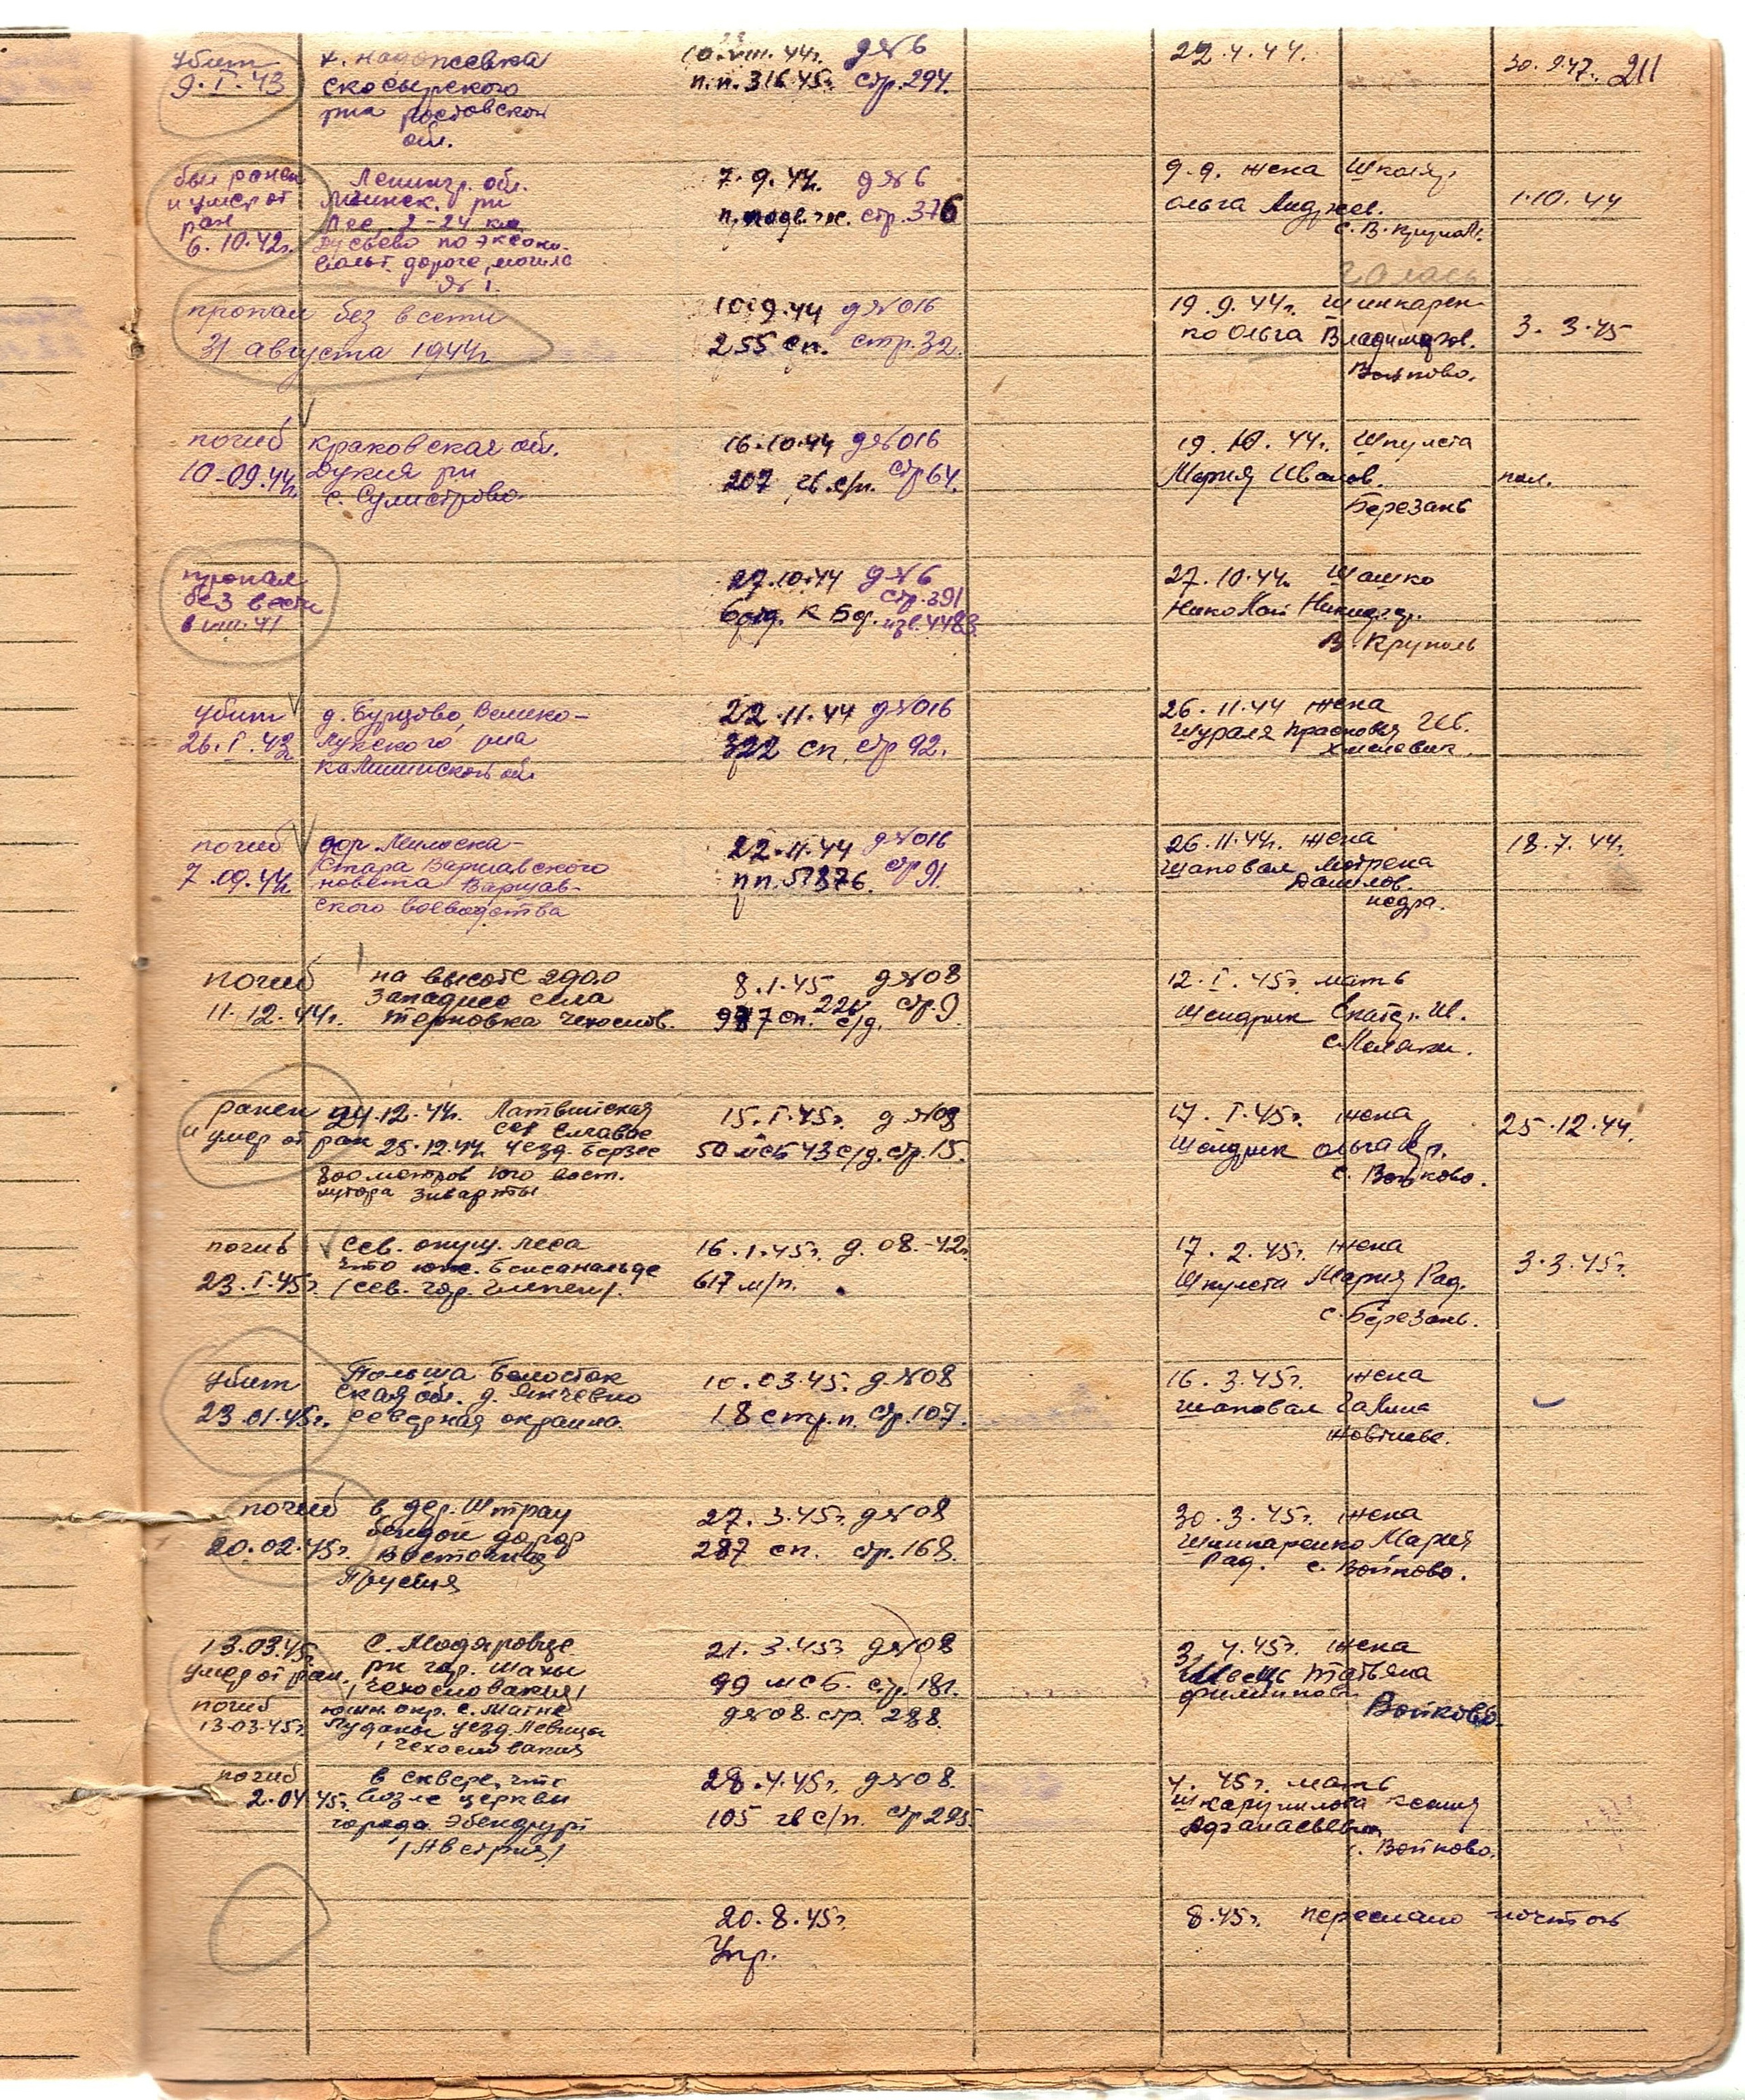 211
убит
9.I.43
х. Надежевка
скосырского
р-на Ростовской
обл.
10.VIII.44г. д№6
п.п. 31645г. стр.294.
22.4.44.
30.9.47.
был ранен
и умер от
ран
6.10.42г.
Ленингр. обл.
Мгинск. р-н
Лес. 2-24 км
по
дороге, могила
№1.
7.9.44. д№6
п.подв.ж. стр.376
9.9. жена
Ольга Андреев.
с.В.Крупол.
1.10.44
пропал без вести
31 августа 1944г.
10.9.44 д№016
255 сп. стр.32.
19.9.44г. Шинкарен-
ко Ольга Владимиров.
Войково.
3.3.45
погиб
10-09.44г.
Краковская обл.
Дукля р-н
с. Сулистрово.
16.10.44 д№016
207 гв.с/п. стр 64.
19.10.44г. Шпулета
Мария Иванов.
Березань
пол.
пропал
без вести
в VIII.41
27.10.44 д№6
стр.391
К Бф. изв.4483
27.10.44г. Шашко
Николай
В. Круполь
убит
26.I.43
д. Бурцово, Велико-
лукского р-на
Калининской обл.
22.11.44 д№016
322 сп. стр 92.
26.11.44 жена
Шураля Прасковья Ив.
Хмелевик.
погиб
7.09.44г.
дер. Милосна-
Стара Варшавского
повета Варшав-
ского воеводства
22.11.44 д№016
пп.57876. стр 91.
26.11.44г. жена
Шаповал Мотрена
Данилов.
Недра.
18.7.44г.
погиб
11.12.44г.
на высоте 290.0
западнее села
Терновка Чехослов.
8.1.45 д№08
987 сп. 226 с/д. стр.9
12.I.45г. мать
Шендрик Екатер. Ив.
с.Малаки.
ранен 24.12.44г. Латвийская
и умер от ран 25.12.44 уезд. Берзес
800 метров юго вост.
хутора Зиварты
15.I.45г. д №08
50 мсб 43 с/д. стр.15.
17.I.45г. жена
Шендрик Ольга
с. Войково.
25.12.44.
погиб
23.I.45г.
Сев. опуш. леса
что юж.
/сев. гор.
16.1.45г. д. 08.-42г.
617 м/п.
17.2.45г. жена
Шпулета Мария Рад.
с.Березань.
3.3.45г.
убит
23.01.45г.
Польша Белосток
ская обл. д. Янчевно
северная окраина.
10.03.45. д.№08
18 стр.п. стр.107.
16.3.45г. жена
Шаповал Галина
Жовтнева.
погиб
20.02.45г.
в дер. Штрау
бендон
Восточная
Пруссия
27.3.45г. д№08
287 сп. стр.168.
30.3.45г. жена
Шинкаренко Мария
Рад. с. Войково.
13.03.45г.
умер от ран.
С. Модяровце
рн гор. Шахы
/Чехословакия/
21.3.45г д№08
99 мсб. стр.181.
3.4.45г. жена
Швец Татьяна
Филиппов.
Войково.
погиб
13.03.45г.
южн. окр. с. Матне
Луданы уезд Левицы
/Чехословакия
д№08. стр. 288.
погиб
2.04 45г.
в сквере, что
возле церкви
города Эбендурт
/Австрия/
28.4.45г. д№08.
105 гв с/п. стр 295.
4. 45г. мать
Шкарупилова Ксения
Афанасьевна
с. Войково.
20.8.45г.
Упр.
8.45г. переслано почтой